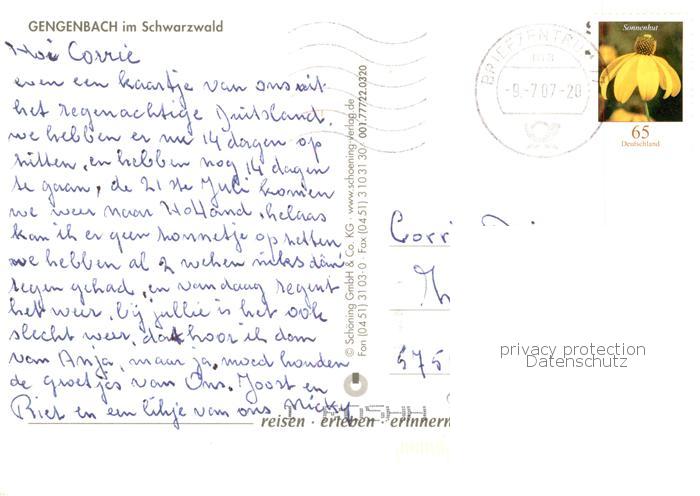 GENGENBACH im Schwarzwald
Hoi Corrie
even een kaartje van ons uit
het regenachtige Duitsland.
we hebben er nu 14 dagen op
zitten, en hebben nog 14 dagen
te gaan, de 21 ste Juli komen
we weer naar Holland, helaas
kan ik er geen zonnetje op zetten
we hebben al 2 weken niks dan
regen gehad, en vandaag regent
het weer, bij jullie is het ook
slecht weer, dat hoor ik dan
van Anja, maar ja, moed houden
de groetjes van Ons. Joost en
Riet en een likje van ons Micky
reisen · erleben · erinnern
© Schöning GmbH & Co. KG · www.schoening-verlag.de
Fon (04 51) 31 03-0 · Fax (04 51) 3 10 31 30 · 001.77722.0320
BRIEFZENTRUM
-9.-7.07-20
Sonnenhut
65
Deutschland
Corri
575
privacy protection
Datenschutz